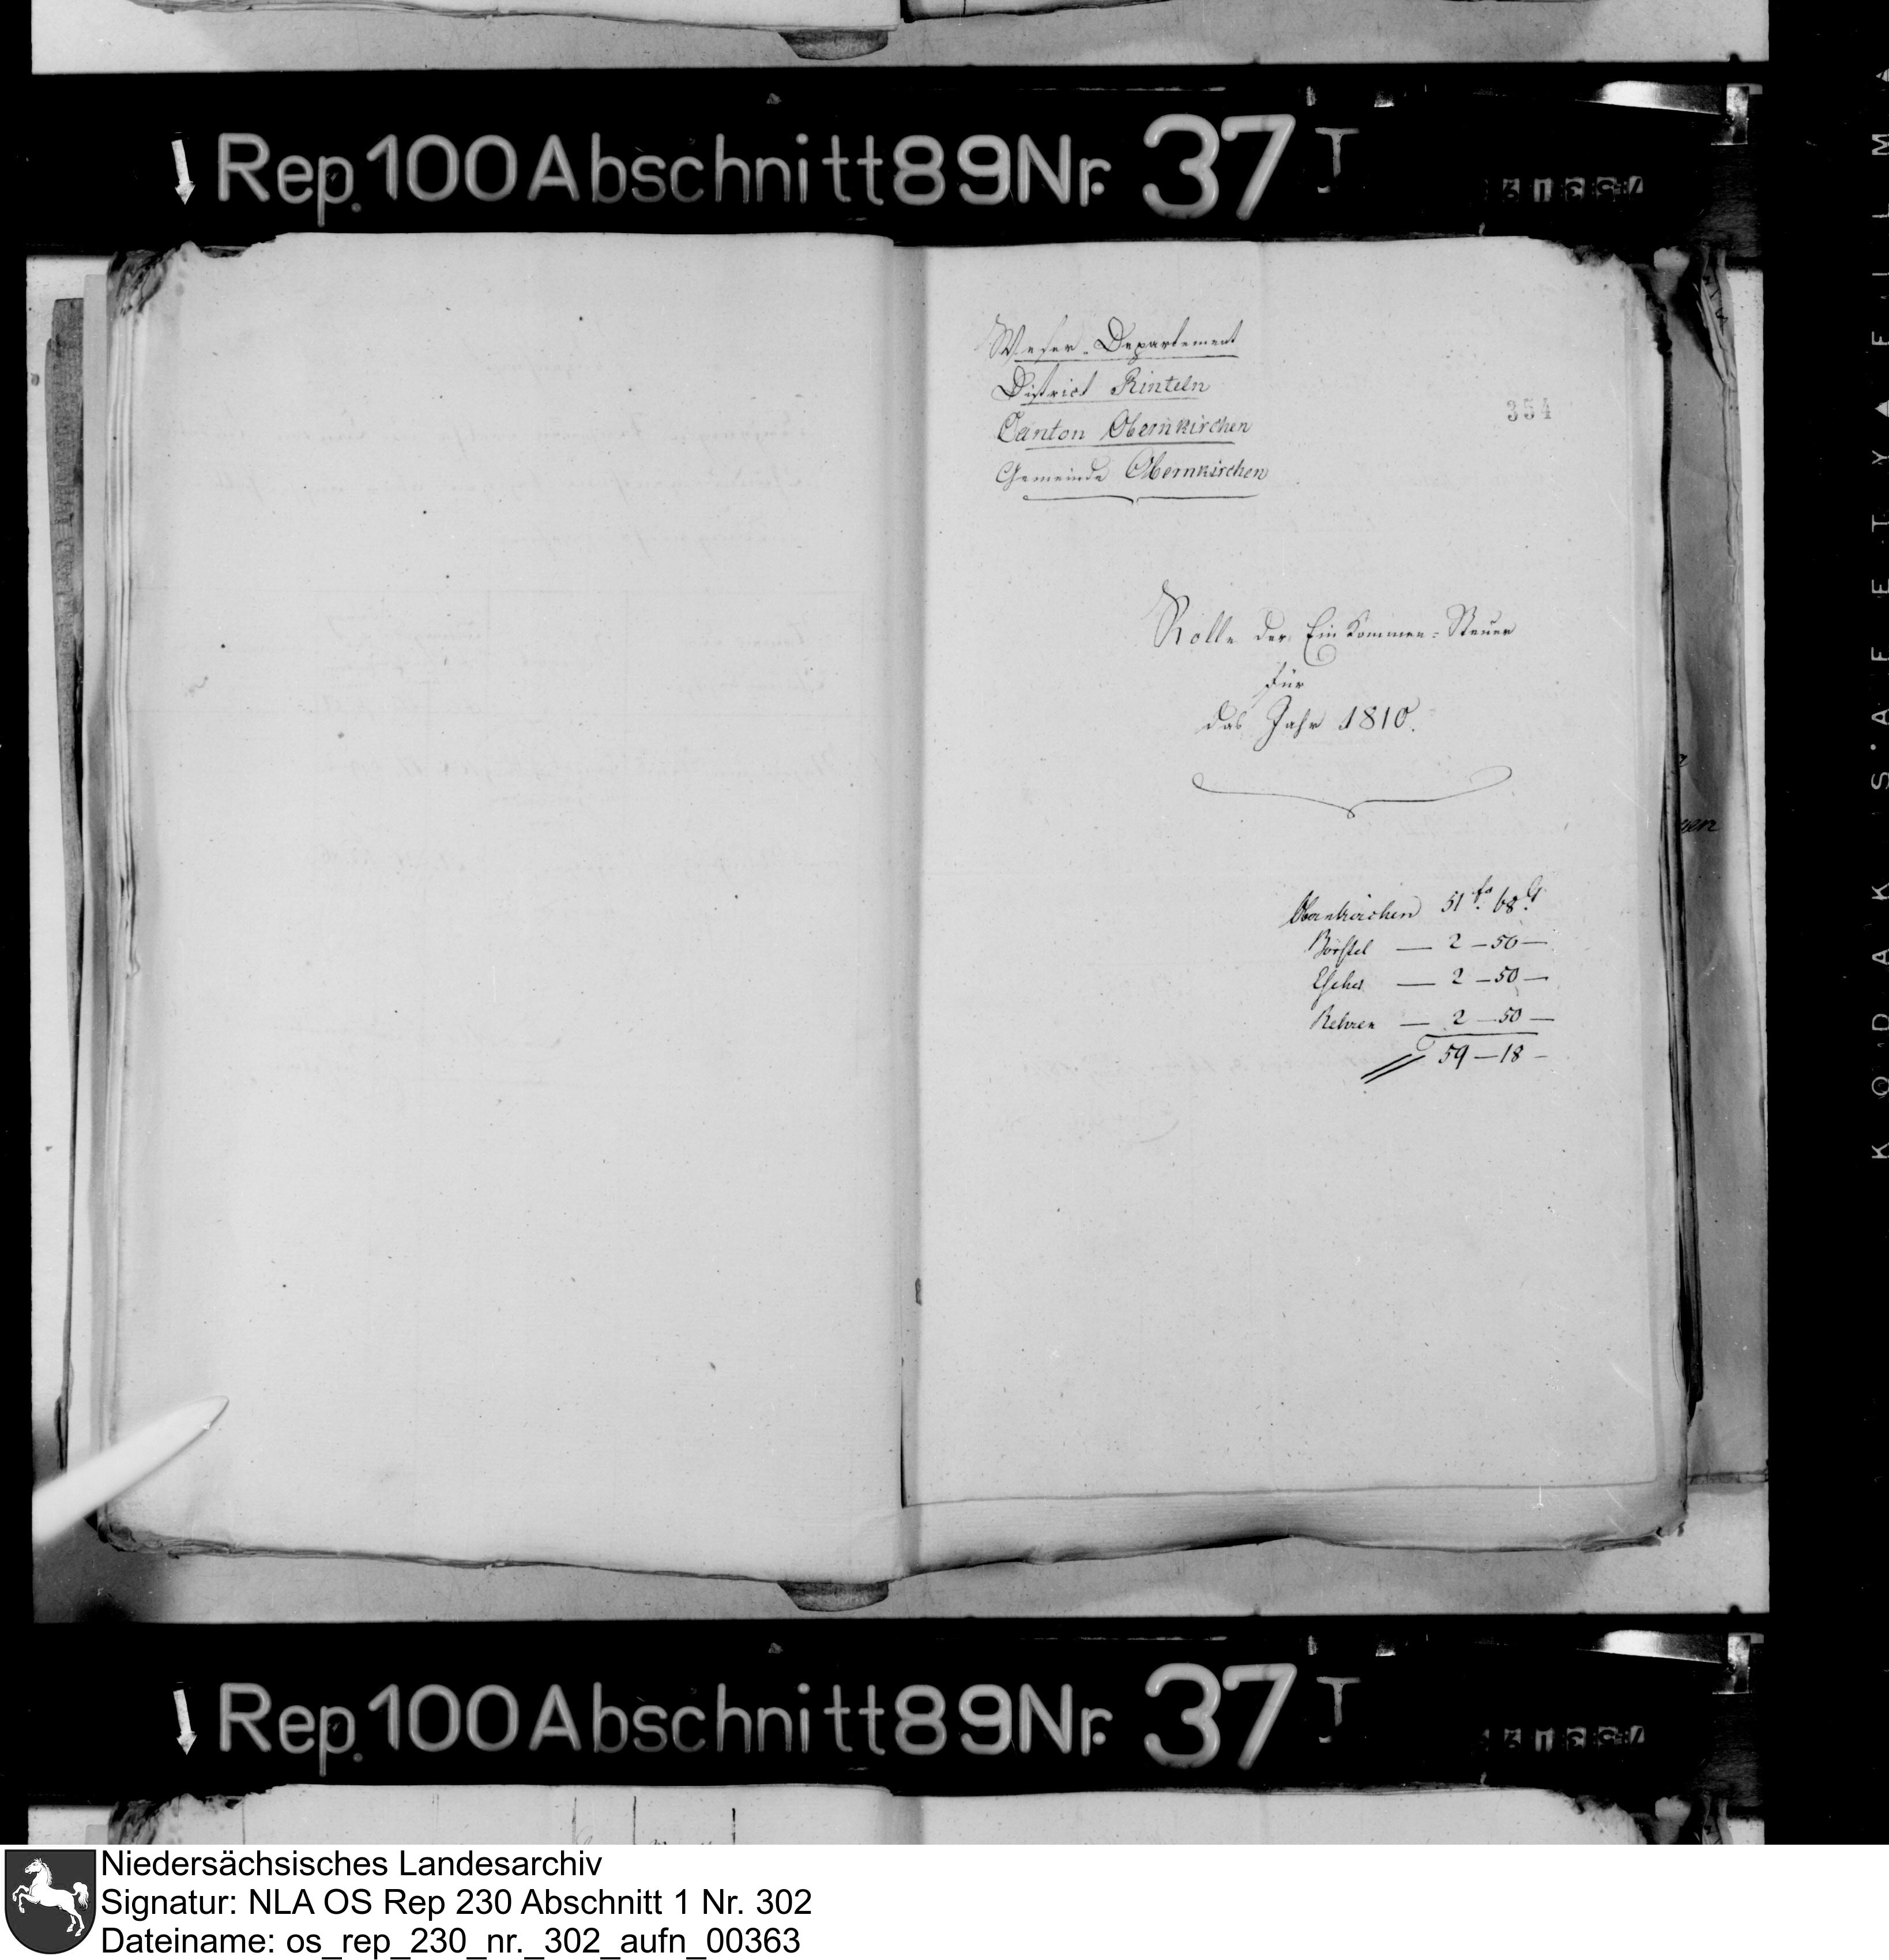 Rep. 100 Abschnitt 89 Nr. 37 I
Weser-Departement
District Rinteln
Canton Obernkirchen
Gemeinde Obernkirchen
354
Rolle der Einkommen-Steuer
für
das Jahr 1810.
Obernkirchen 51 fs. 68 Ct.
Borstel — 2 — 50 —
Escher — 2 — 50 —
Rehren — 2 — 50 —
59 — 18 —
Rep. 100 Abschnitt 89 Nr. 37 I
KODAK SAFETY FILM
Niedersächsisches Landesarchiv
Signatur: NLA OS Rep 230 Abschnitt 1 Nr. 302
Dateiname: os_rep_230_nr._302_aufn_00363